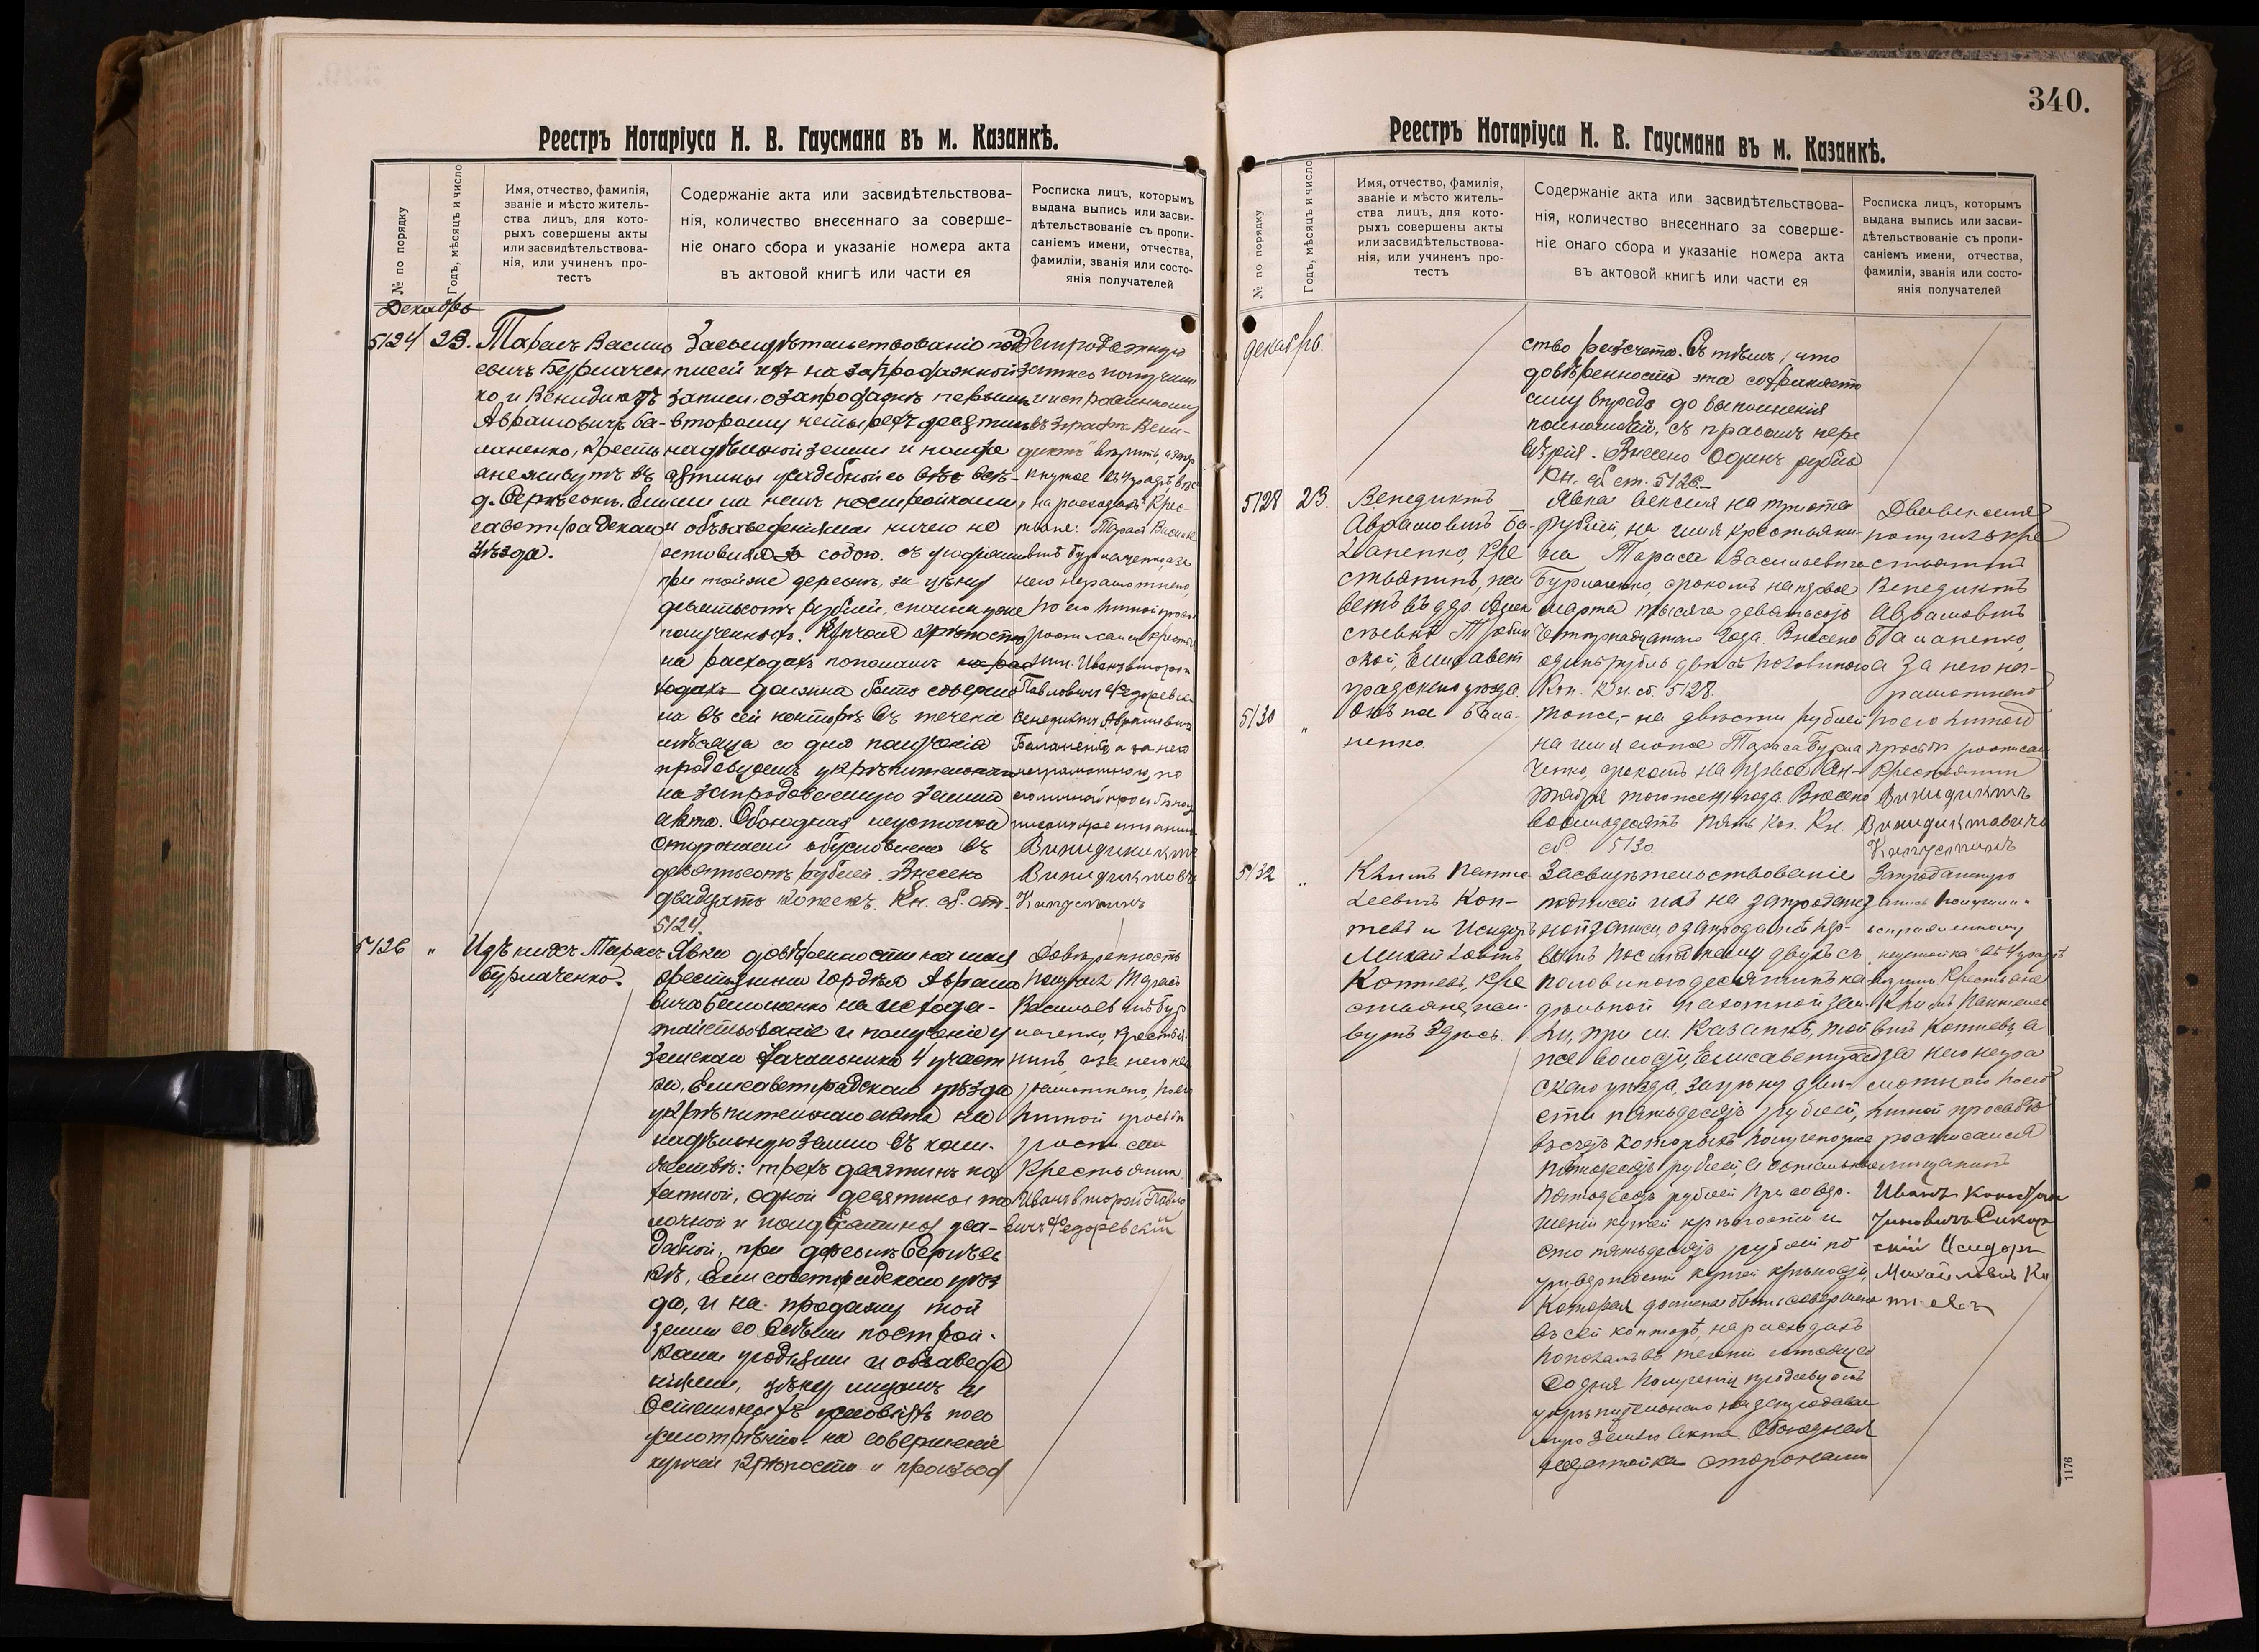 340.
Реестръ Нотаріуса Н. В. Гаусмана въ м. Казанкѣ.
№ по порядку
Годъ, мѣсяцъ и число
Имя, отчество, фамилія,
званіе и мѣсто житель-
ства лицъ, для кото-
рыхъ совершены акты
или засвидѣтельствова-
нія, или учиненъ про-
тестъ
Содержаніе акта или засвидѣтельствова-
нія, количество внесеннаго за соверше-
ніе онаго сбора и указаніе номера акта
въ актовой книгѣ или части ея
Росписка лицъ, которымъ
выдана выпись или засви-
дѣтельствованіе съ пропи-
саніемъ имени, отчества,
фамиліи, званія или состо-
янія получателей
Декабрь
5124
23.
Тарасъ Василь
евичъ Бурлачен
ко и Венидиктъ
Аврамовичъ Ба-
ланенко, крестья
ане живутъ въ
д. Сергѣевкѣ, Ели
саветградскаго
уѣзда.
Засвидѣтельствованіе под
писей ихъ на запродажной
записи, о запродажѣ первымъ
второму четырехъ десятинъ
надѣльной земли и полде
сятины усадебной со всѣ-
ми на ней постройками,
и обзаведеніями ничего не
оставляя за собою, съ угодіями
при той же деревнѣ, за цѣну
девятьсотъ рублей, сполна уже
полученныхъ. Купчая крѣпость
на расходахъ пополамъ
должна быть соверше
на въ сей конторѣ въ теченіе
мѣсяца со дня полученія
продавцемъ укрѣпительнаго
на запродаваемую землю
акта. Обоюдная неустойка
сторонами обусловлена въ
девятьсотъ рублей. Внесено
двадцать копеекъ. Кн. сб. ст.
5124.
Запродажную
запись получили
и исправленному
въ 3 графѣ Вени-
диктъ вѣрить, а зачер
кнутое въ 4 графѣ
на расходахъ Крес-
тьяне: Тарасъ Василье
вичъ Бурлаченко, а за
него неграмотнаго,
по его личной просьбѣ
росписался крестья
нин. Иванъ второй
Павловичъ Федоревскій
Венедиктъ Аврамовичъ
Баланенко, а за него
неграмотнаго, по
его личной просьбѣ рос
писался крестьянинъ
Винидиктъ
Винидиктовъ
Капустинъ
5126
"
Изъ нихъ Тарасъ
Бурлаченко.
Явка довѣренности на имя
крестьянина Гордѣя Аврамо
вича Баланенко на исхода-
тайствованіе и полученіе у
Земскаго Начальника 4 участ
ка, Елисаветградскаго уѣзда
укрѣпительнаго акта на
надѣльную землю въ коли-
чествѣ: трехъ десятинъ па
хатной, одной десятины то
лочной и полдесятины уса-
дебной, при деревнѣ Сергѣев
кѣ, Елисаветградскаго уѣз
да, и на продажу той
земли со всѣми построй-
ками угодіями и обзаведе
ніями, цѣну лицамъ и
остальныхъ условіяхъ по его
усмотрѣнію, на совершеніе
купчей крѣпости и производ
Довѣренность
получилъ Тарасъ
Васильевичъ Бур
лаченко, крестья
нинъ, а за него не
грамотнаго, по его
личной просьбѣ
росписался
Крестьянин
Иванъ второй Павло
вичъ Федоревскій
Реестръ Нотаріуса Н. В. Гаусмана въ м. Казанкѣ.
№ по порядку
Годъ, мѣсяцъ и число
Имя, отчество, фамилія,
званіе и мѣсто житель-
ства лицъ, для кото-
рыхъ совершены акты
или засвидѣтельствова-
нія, или учиненъ про-
тестъ
Содержаніе акта или засвидѣтельствова-
нія, количество внесеннаго за соверше-
ніе онаго сбора и указаніе номера акта
въ актовой книгѣ или части ея
Росписка лицъ, которымъ
выдана выпись или засви-
дѣтельствованіе съ пропи-
саніемъ имени, отчества,
фамиліи, званія или состо-
янія получателей
декабрь.
ство расчета. Съ тѣмъ, что
довѣренность эта сохраняетъ
силу впредь до выполненія
полномочій, съ правомъ пере
вѣрія. Внесено Одинъ рубль
Кн. сб. ст. 5126.
5128
23.
Венедиктъ
Аврамовичъ Ба-
ланенко, кре
стьянинъ, жи
ветъ въ дер. Алек
сѣевкѣ Троиц
ской, Елисавет
градскаго уѣзда.
Явка векселя на триста
рублей, на имя крестьяни-
на Тараса Васильевича
Бурлаченко, срокомъ на первое
марта тысяча девятьсотъ
четырнадцатаго года. Внесено
одинъ рубль двѣ съ половиною
коп. Кн. сб. 5128.
Два векселя
получилъ кре
стьянинъ
Венедиктъ
Аврамовичъ
Баланенко,
а за него не-
грамотнаго
по его личной
просьбѣ росписался
Крестьянин
Винидиктъ
Винидиктовичъ
Капустинъ
5130
"
Онъ же Бала-
ненко.
Тоже, на двѣсти рублей
на имя его же Тараса Бурла
ченко, срокомъ на первое Ок-
тября того же года. Внесено
восемьдесятъ пять коп. Кн.
сб 5130.
5132
"
Климъ Панте
леевичъ Коп-
тевъ и Исидоръ
Михайловичъ
Коптевъ, кре
стьяне, жи-
вутъ здѣсь.
Засвидѣтельствованіе
подписей ихъ на запродаж
ной записи, о запродажѣ пер-
вымъ послѣднему двухъ съ
половиною десятинъ на
дѣльной пахотной зем-
ли, при м. Казанкѣ, той
же волости, Елисаветград
скаго уѣзда, за цѣну двѣ-
сти пятьдесятъ рублей,
въ счетъ которыхъ получено уже
пятьдесятъ рублей, а остальные
пятьдесятъ рублей при совер-
шеніи купчей крѣпости и
сто пятьдесятъ рублей по
утвержденіи купчей крѣпости,
которая должна быть совершена
въ сей конторѣ, на расходахъ
пополамъ въ теченіи мѣсяца
со дня полученія продавцомъ
укрѣпительнаго на запродавае
мую землю акта. Обоюдная
неустойка сторонами
Запродажную
запись получили
исправленному
"неустойка" въ 4 графѣ
вѣрить Крестьяне
Климъ Пантелее
вичъ Коптевъ, а
за него негра
мотнаго по его
личной просьбѣ
росписался
мѣщанинъ
Иванъ
Сикор
скій Исидоръ
Михайловичъ Ко
птевъ
1176